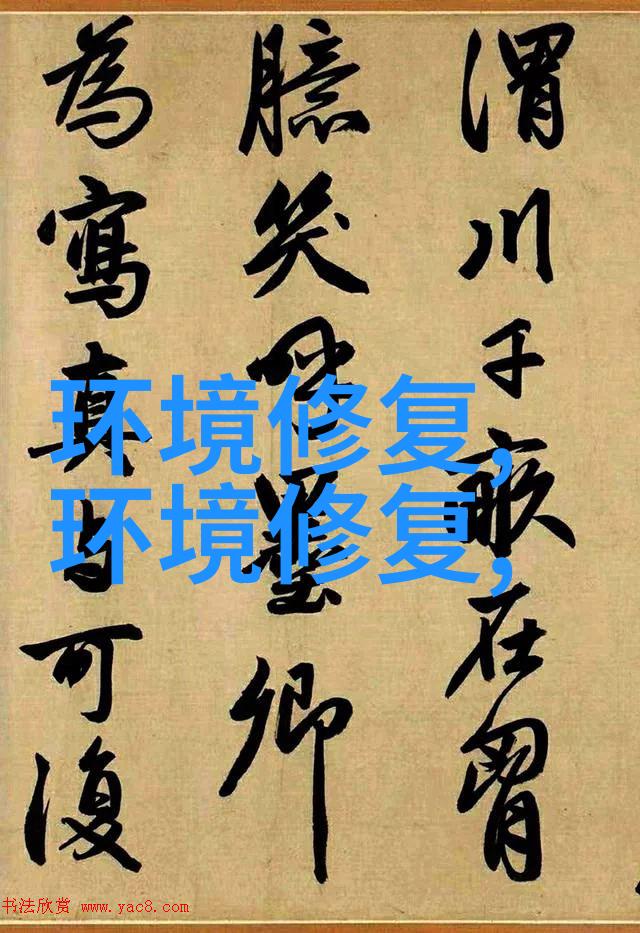 渭川千畝在胷
臆笑呼墨卿
為寫真与可復
环境修复,
环境修复,
书法欣赏 www.yac8.com